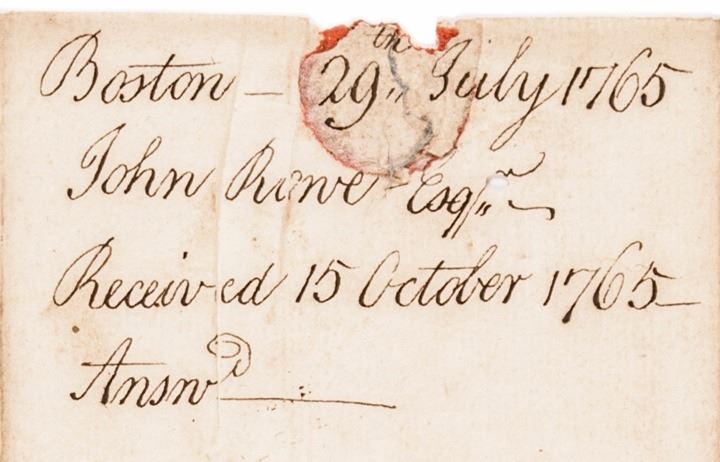 Boston — 29th July 1765
John Rowe Esqr
Received 15 October 1765
Answd